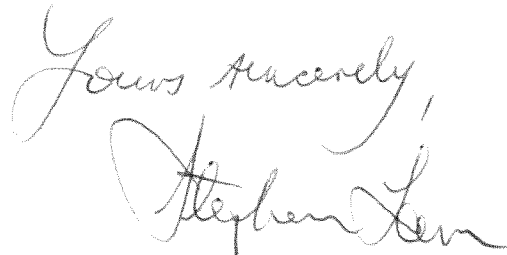 Yours sincerely,
Stephen